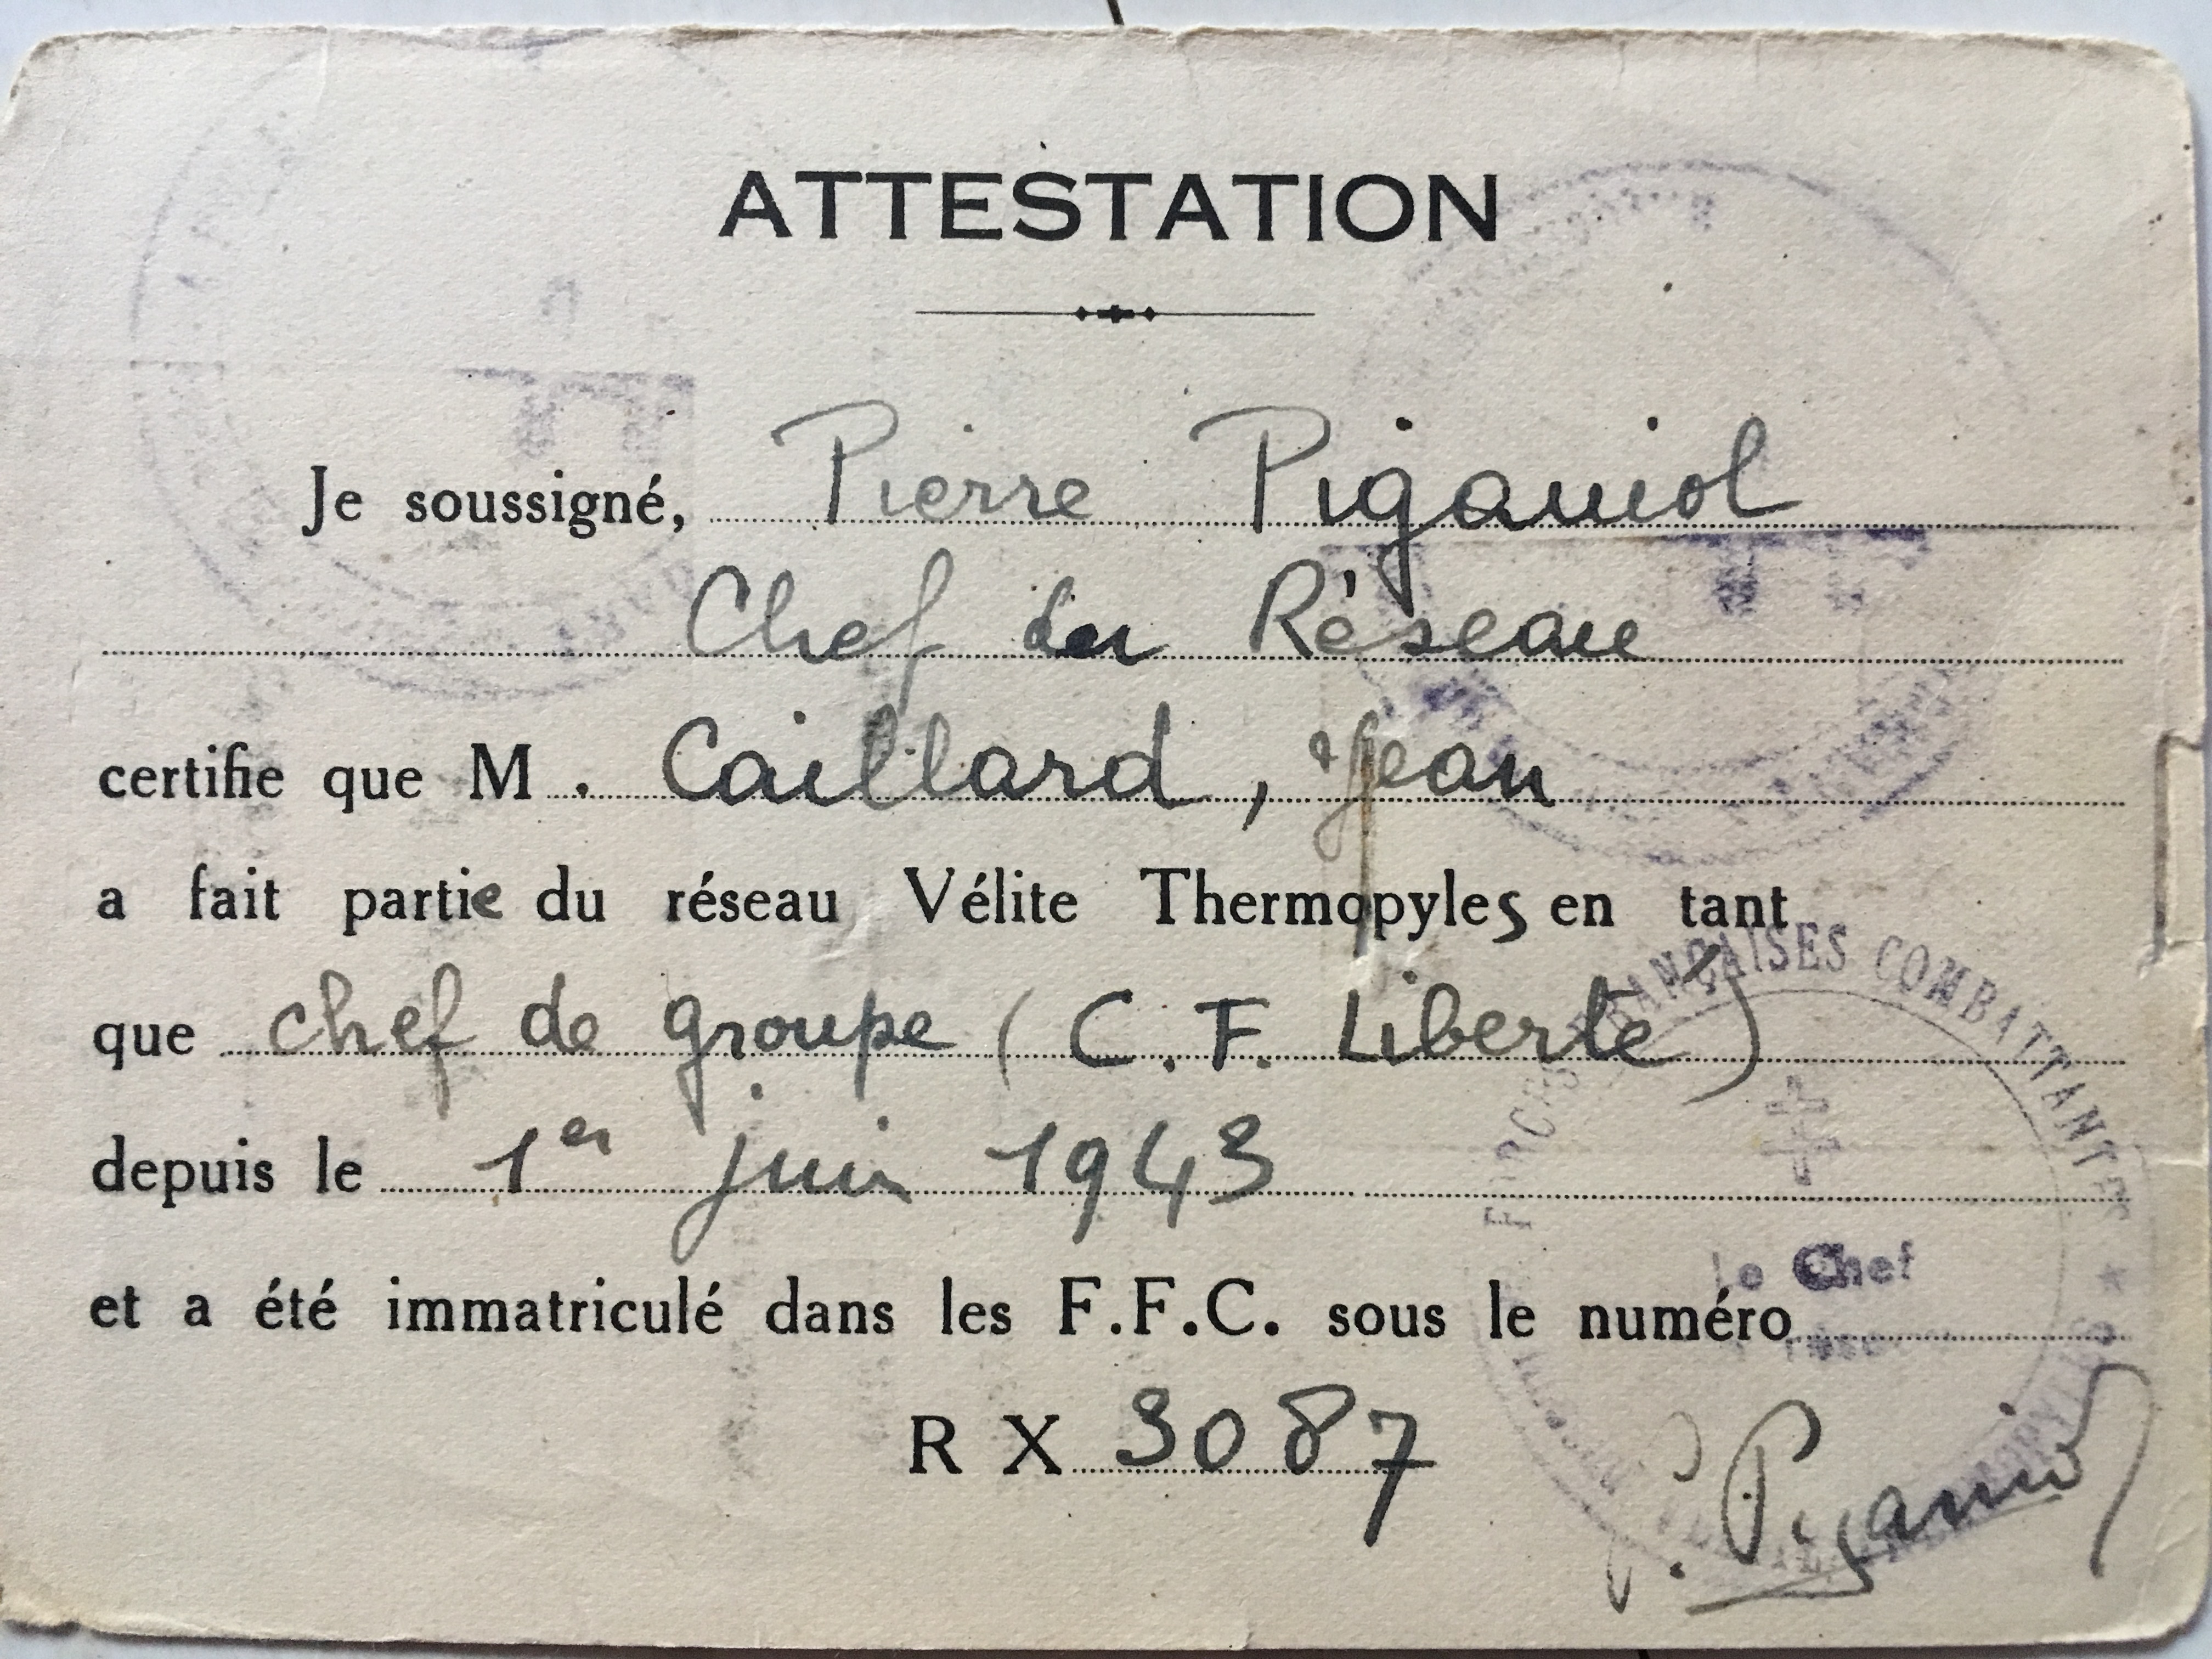 ATTESTATION
Je soussigné, Pierre Piganiol
Chef du Réseau
certifie que M. Caillard, Jean
a fait partie du réseau Vélite Thermopyles en tant
que chef de groupe (C.F. Liberté)
depuis le 1er juin 1943
et a été immatriculé dans les F.F.C. sous le numéro
R X 3087
FORCES FRANÇAISES COMBATTANTES
le Chef
P. Piganiol